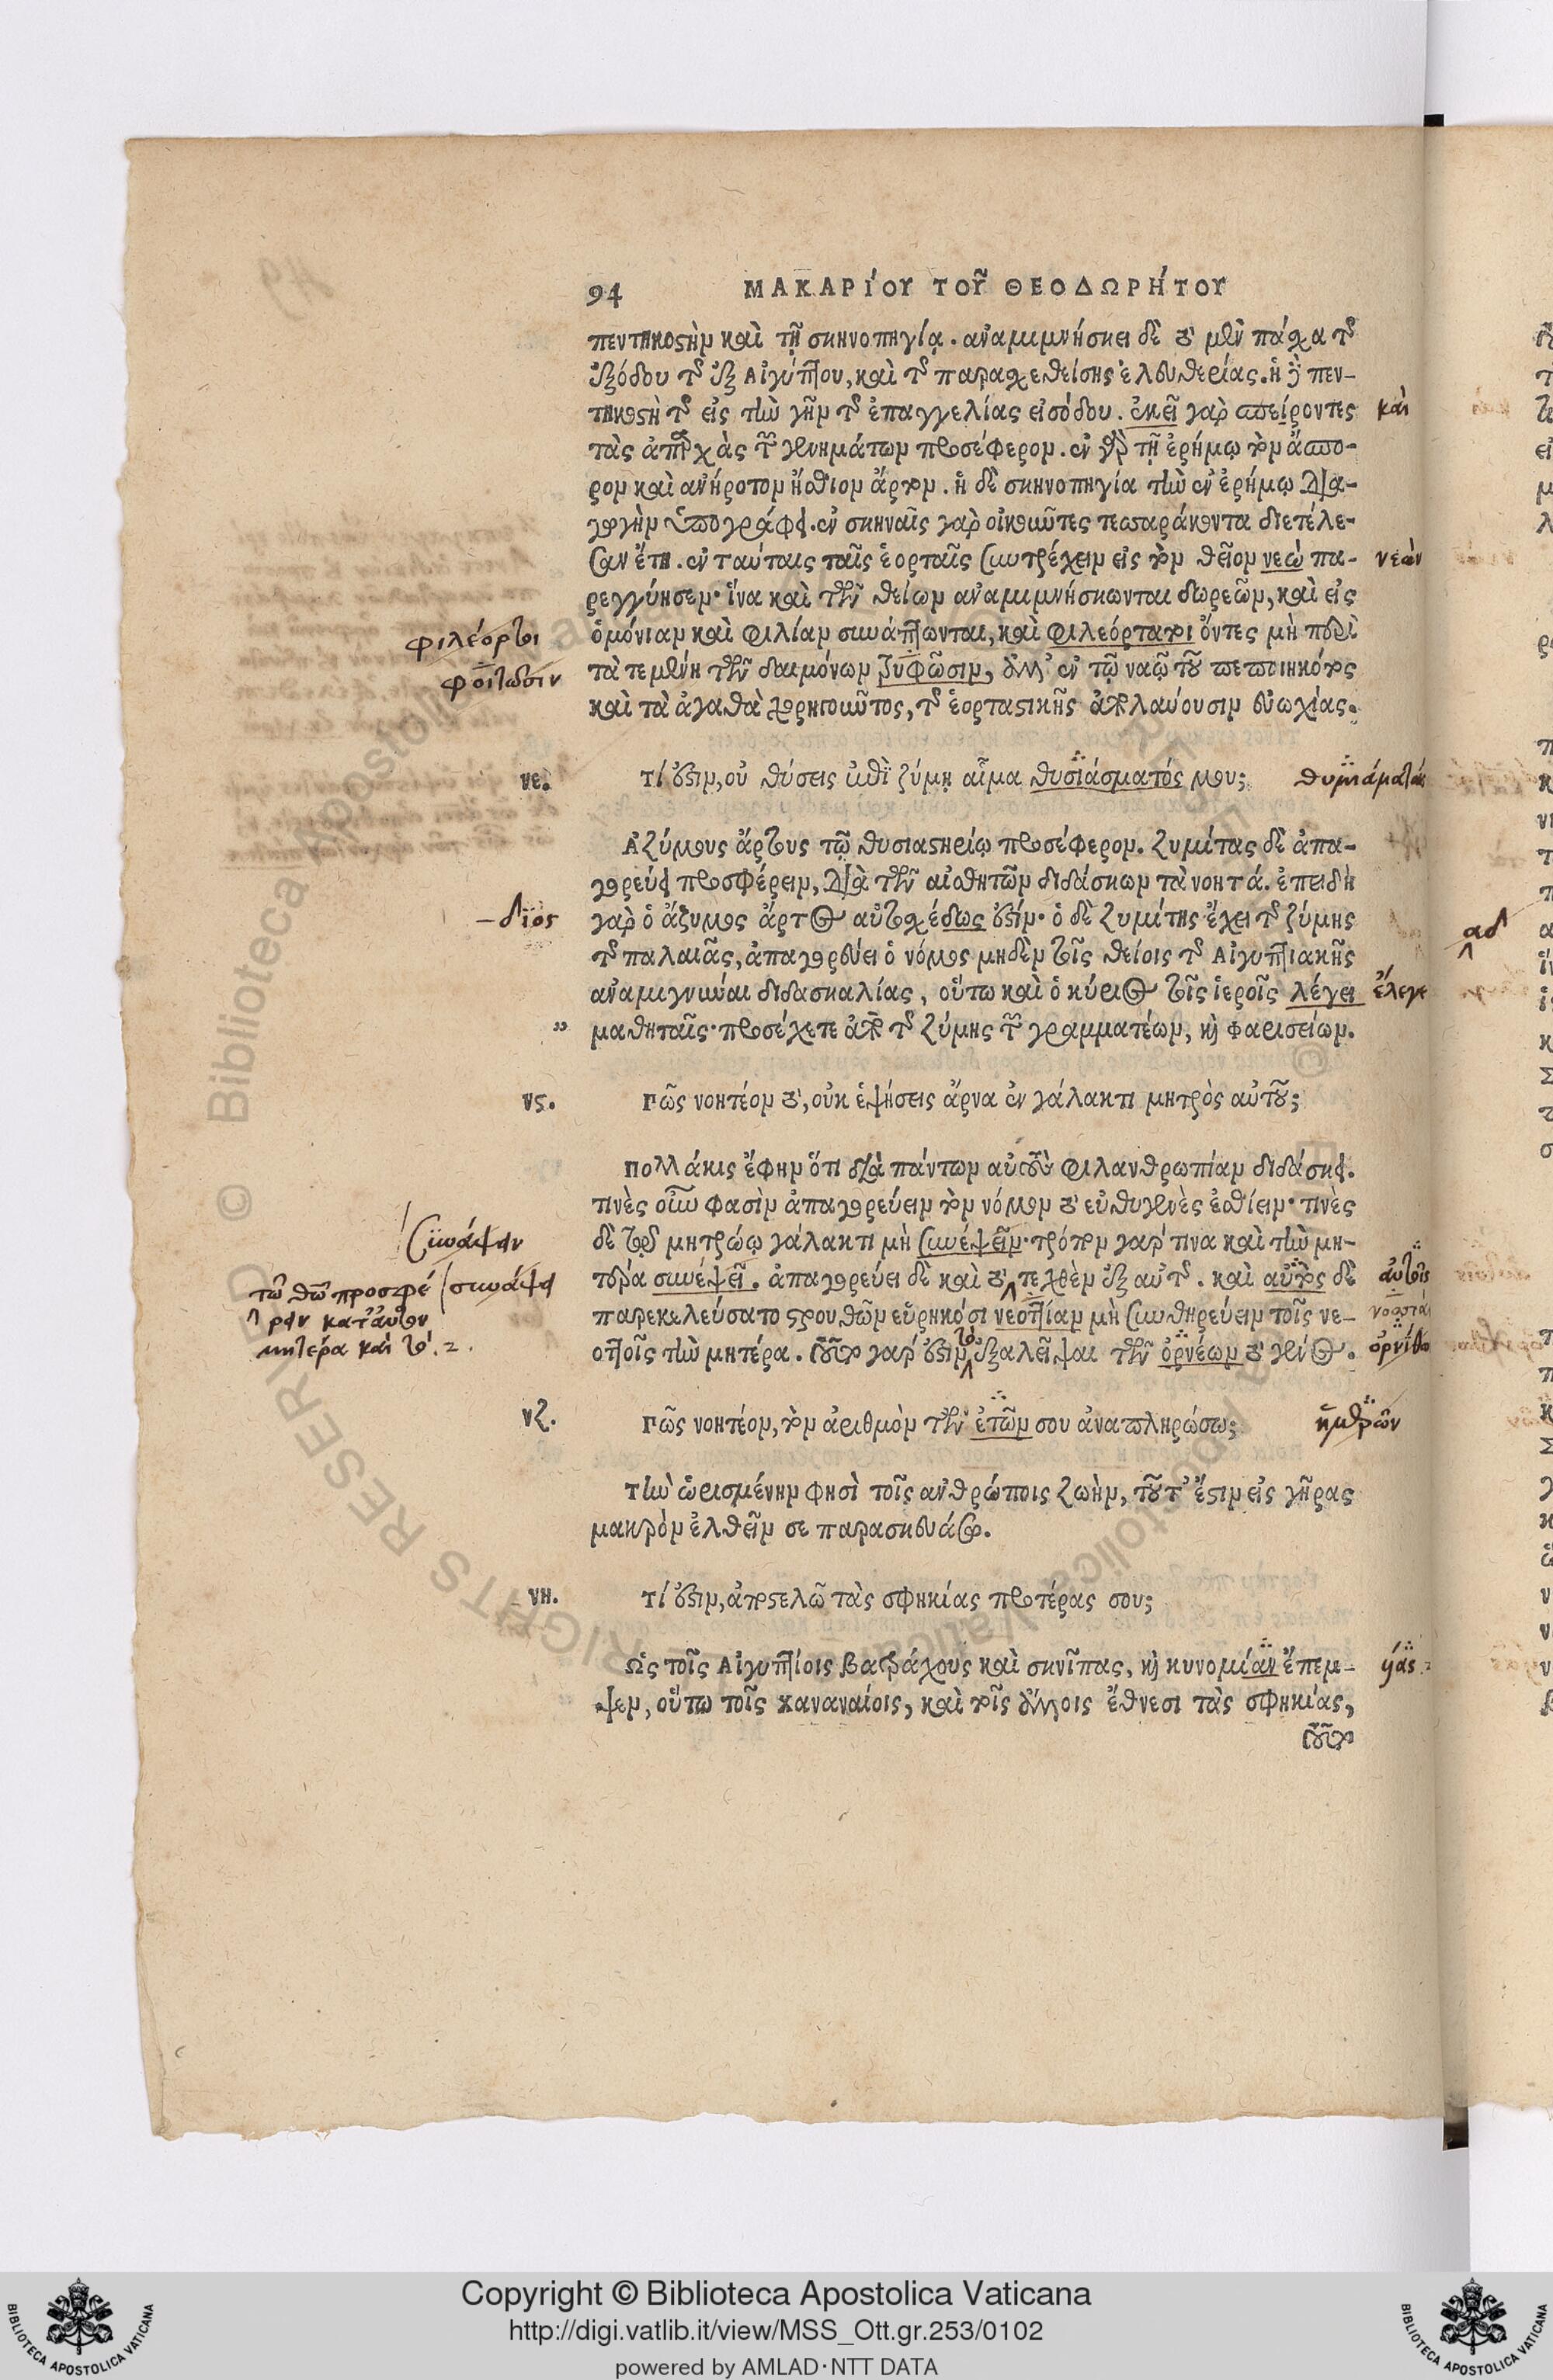 94 ΜΑΚΑΡΙΟΥ ΤΟΥ͂ ΘΕΟΔΩΡΉΤΟΥ
πεντηκοστὴν καὶ τῇ σκηνοπηγίᾳ. ἀναμιμνήσκει δὲ τὸ μὲν πάσχα τῆς
ἐξόδου τῆς ἐξ Αἰγύπτου, καὶ τῆς παρασχεθείσης ἐλευθερίας. ἡ δὲ πεν-
τηκοστὴ τῆς εἰς τὴν γῆν τῆς ἐπαγγελίας εἰσόδου. ἐκεῖ γὰρ σπείροντες
καὶ
τὰς ἀπαρχὰς τῶν γεννημάτων προσέφερον. ἐν γὰρ τῇ ἐρήμῳ τὸν ἄσπο-
ρον καὶ ἀνήροτον ἤσθιον ἄρτον. ἡ δὲ σκηνοπηγία τὴν ἐν ἐρήμῳ δια-
γωγὴν ὑπογράφει. ἐν σκηναῖς γὰρ οἰκοῦντες τεσσαράκοντα διετέλε-
σαν ἔτη. ἐν ταύταις ταῖς ἑορταῖς συντρέχειν εἰς τὸν θεῖον νεὼ πα-
νεὼν
ρεγγύησεν· ἵνα καὶ τῶν θείων ἀναμιμνήσκωνται δωρεῶν, καὶ εἰς
ὁμόνιαν καὶ φιλίαν συνάπτωνται, καὶ φιλεόρταιοι ὄντες μὴ περὶ
φιλέορτοι
τὰ τεμένη τῶν δαιμόνων τυφῶσιν, ἀλλ' ἐν τῷ ναῷ τοῦ πεποιηκότος
φοιτῶσιν
καὶ τὰ ἀγαθὰ χορηγοῦντος, τῆς ἑορταστικῆς ἀπολαύουσιν εὐωχίας.
νε. Τί ἐστιν, οὐ θύσεις ἐπὶ ζύμῃ αἷμα θυσιάσματός μου;
θυμιάματός
Αζύμους ἄρτους τῷ θυσιαστηρίῳ προσέφερον. ζυμίτας δὲ ἀπα-
γορεύει προσφέρειν, διὰ τῶν αἰσθητῶν διδάσκων τὰ νοητά. ἐπειδὴ
γὰρ ὁ ἄζυμος ἄρτος αὐτοσχέδως ἐστίν· ὁ δὲ ζυμίτης ἔχει τῆς ζύμης
-διος
τῆς παλαιᾶς, ἀπαγορεύει ὁ νόμος μηδὲν τοῖς θείοις τῆς Αἰγυπτιακῆς
ἀναμιγνῦναι διδασκαλίας, οὕτω καὶ ὁ κύριος τοῖς ἱεροῖς λέγει
ἔλεγε
„ μαθηταῖς· προσέχετε ἀπὸ τῆς ζύμης τῶν γραμματέων, καὶ φαρισείων.
νϛ. Πῶς νοητέον τὸ, οὐκ ἑψήσεις ἄρνα ἐν γάλακτι μητρὸς αὐτοῦ;
Πολλάκις ἔφην ὅτι διὰ πάντων αὐτοὺς φιλανθρωπίαν διδάσκει.
τινὲς οὖν φασὶν ἀπαγορεύειν τὸν νόμον τὸ εὐθυγενὲς ἐσθίειν· τινὲς
δὲ τῷ μητρώῳ γάλακτι μὴ συνέψειν· τρόπον γάρ τινα καὶ τὴν μη-
τέρα συνέψει. ἀπαγορεύει δὲ καὶ τὸ τεχθὲν ἐξ αὐτῆς. καὶ αὐτὸς δὲ
τῶ θῶ προσφέ
ρειν κατ' αὐτὸν
μητέρα καὶ τό.
αὐτοῖς
παρεκελεύσατο στρουθῶν εὑρηκόσι νεοττίαν μὴ συνθηρεύειν τοῖς νε-
οττοῖς τὴν μητέρα. τοῦτο γάρ ἐστιν ἐξαλεῖψαι τῶν ὀρνέων τὸ γένος.
νζ. Πῶς νοητέον, τὸν ἀριθμὸν τῶν ἐτῶν σου ἀναπληρώσω;
ἡμερῶν
Τὴν ὡρισμένην φησὶ τοῖς ἀνθρώποις ζωὴν, τοῦτ' ἔστιν εἰς γῆρας
μακρὸν ἐλθεῖν σε παρασκευάσω.
νη. Τί ἐστιν, ἀποστελῶ τὰς σφηκίας προτέρας σου;
Ως τοῖς Αἰγυπτίοις βατράχους καὶ σκνῖπας, καὶ κυνομίαν ἔπεμ-
ψεν, οὕτω τοῖς Χαναναίοις, καὶ τοῖς ἄλλοις ἔθνεσι τὰς σφηκίας,
τοῦτο
Copyright © Biblioteca Apostolica Vaticana
http://digi.vatlib.it/view/MSS_Ott.gr.253/0102
powered by AMLAD·NTT DATA
BIBLIOTECA APOSTOLICA VATICANA
BIBLIOTECA APOSTOLICA VATICANA